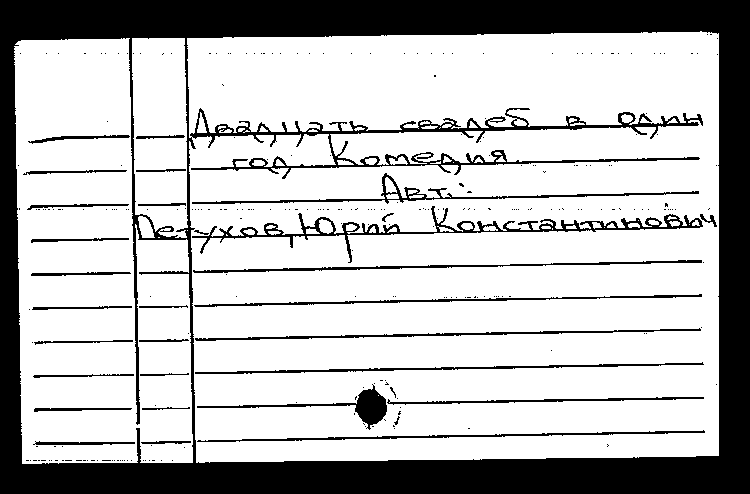 Двадцать свадеб в один
год. Комедия.
Авт.:
Петухов, Юрий Константинович